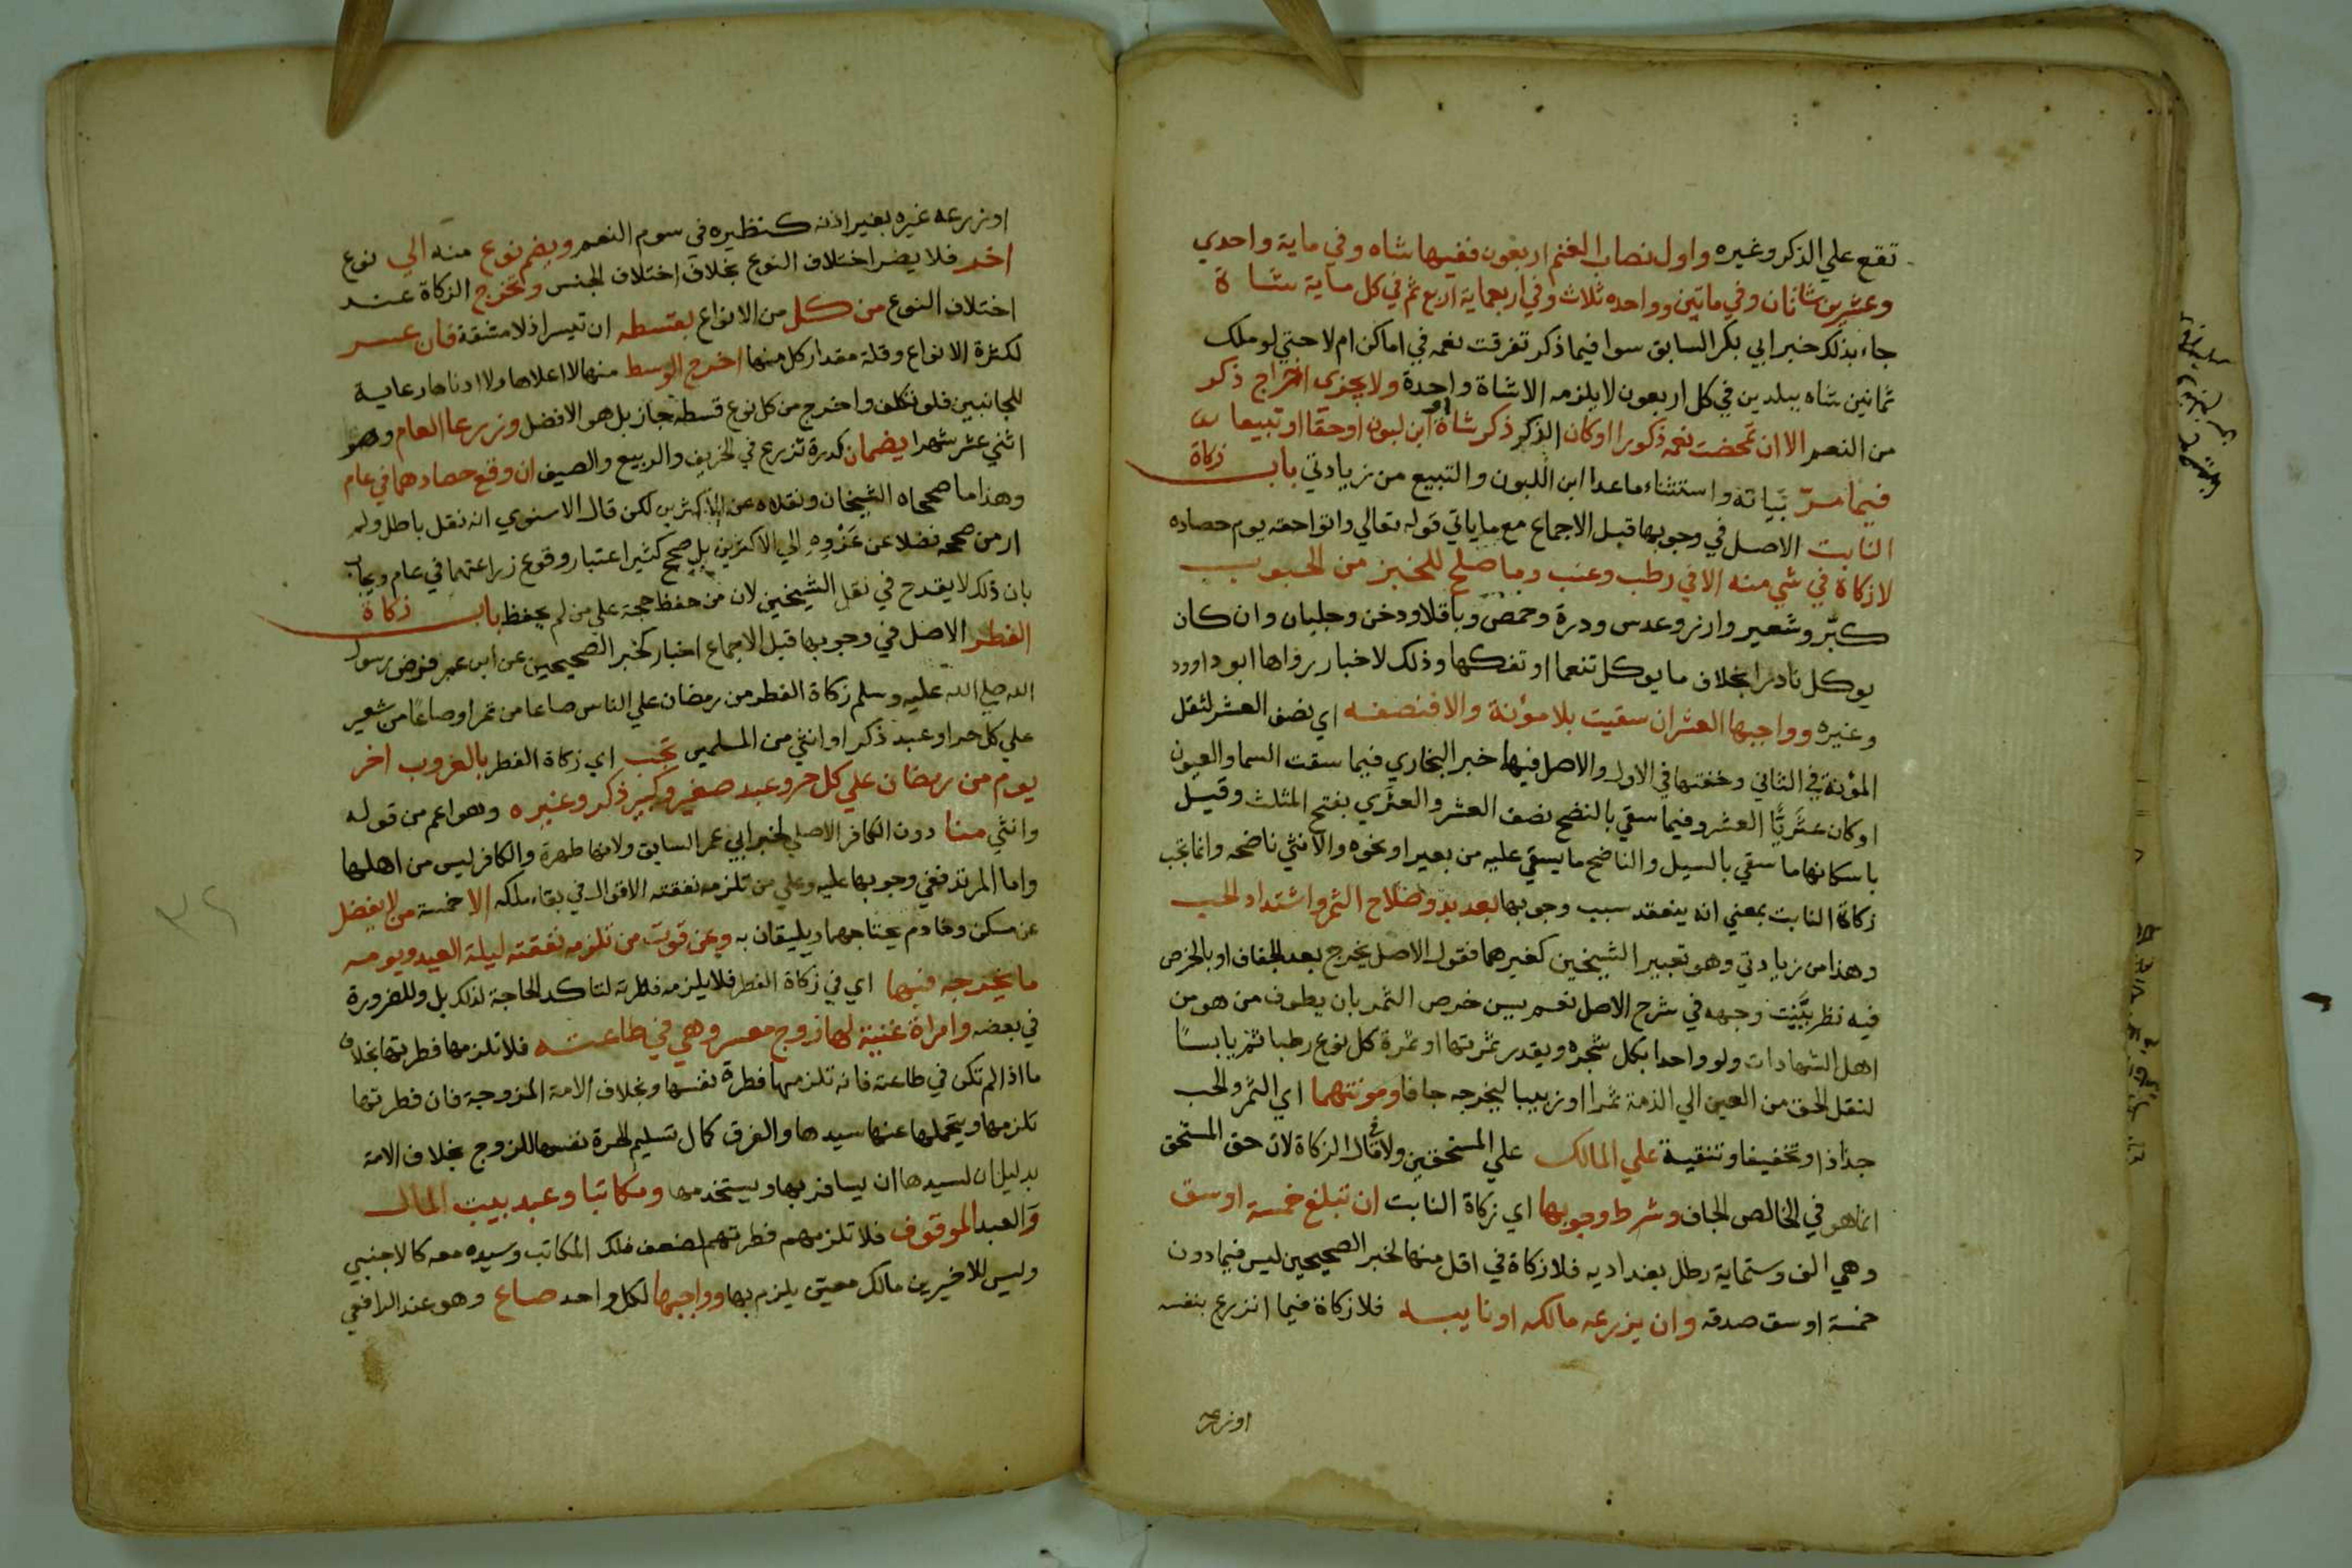 تقع علي الذكر وغيره واول نصاب الغنم اربعون ففيها شاه وفي ماية واحدي
وعشرين شاتان وفي ماتين وواحده ثلاث وفي اربعماية اربع ثم في كل ماية شاة
جاء بذلك خبر ابي بكر السابق سوا فيما ذكر تفرقت نعمه في اماكن ام لا حتي لو ملك
ثمانين شاه ببلدين في كل اربعون لا يلزمه الا شاة واحدة ولا يجزي اخراج ذكر
من النعم الا ان تمحضت نعمه ذكورا او كان الذكر ذكر شاة او ابن لبون او حقا او تبيعا
فيما مرّ بَيَانه واستثناء ماعدا ابن اللبون والتبيع من زيادتي باب زكاة
النابت الاصل في وجوبها قبل الاجماع مع ماياتي قوله تعالي واتوا حقه يوم حصاده
لا زكاة في شي منه الا في رطب وعنب وما صلح للخبز من الحبوب
كبّر وشعير وارز وعدس ودرة وحمص وباقلا ودخن وجلبان وان كان
يوكل نادرا بخلاف ما يوكل تنعما او تفكها وذلك لاخبار رواها ابو داوود
وغيره وواجبها العشر ان سقيت بلا مؤنة والا فنصفه اي نصف العشر لثقل
المؤنة في الثاني وخفتها في الاول والاصل فيها خبر البخاري فيما سقت السما والعيون
او كان عَثَريًّا العشر وفيما سقي بالنضح نصف العشر والعثَري بفتح المثلث وقيل
باسكانها ما سقي بالسيل والناضح ما يسقي عليه من بعير او نحوه والانثي ناضحه وانما تجب
زكاة النابت بمعني انه ينعقد سبب وجوبها بعد بدو صلاح الثمر واشتداد الحب
وهذا من زيادتي وهو تعبير الشيخين كغيرهما فقول الاصل يخرج بعد الجفاف او بالخرص
فيه نظر بَيَّنْت وجهه في شرح الاصل نعم يسن خرص الثمر بان يطوف من هو من
اهل الشهادات ولو واحدا بكل شجره ويقدر ثمرتها او ثمرة كل نوع رطبا ثم يابسًا
لنقل الحق من العين الي الذمة تمرا او زبيبا ليخرجه جافا ومونتهما اي الثمر والحب
جذاذا وتجفيفا وتنقية علي المالك علي المستحقين ولا في مال الزكاة لان حق المستحق
انما هو في الخالص الجاف وشرط وجوبها اي زكاة النابت ان تبلغ خمسة اوسق
وهي الف وستماية رطل بغداديه فلا زكاة في اقل منها لخبر الصحيحين ليس فيما دون
خمسة اوسق صدقه وان يزرعه مالكه او نايبه فلا زكاة فيما انزرع بنفسه
او زرعه
او زرعه غيره بغير اذنه كنظيره في سوم النعم ويضم نوع منه الي نوع
اخر فلا يضر اختلاف النوع بخلاف اختلاف الجنس وتخرج الزكاة عند
اختلاف النوع من كل من الانواع بقسطه ان تيسر اذ لا مشقة فان عسر
لكثرة الانواع وقلة مقدار كل منها اخرج الوسط منها لا اعلاها ولا ادناها رعاية
للجانبين فلو تكلف واخرج من كل نوع قسطه جاز بل هو الافضل وزرعا العام وهو
اثني عشر شهرا يضمان كدرة تزرع في الخريف والربيع والصيف ان وقع حصادهما في عام
وهذا ما صححاه الشيخان ونقلاه عن الاكثرين لكن قال الاسنوي انه نقل باطل ولم
ار من صححه فضلا عن عَزْوِهِ الي الاكثرين بل صحح كثير اعتبار وقوع زراعتهما في عام ويجاب
بان ذلك لا يقدح في نقل الشيخين لان من حفظ حجة علي من لم يحفظ باب زكاة
الفطر الاصل في وجوبها قبل الاجماع اخبار كخبر الصحيحين عن ابن عمر فرض رسول
الله صلي الله عليه وسلم زكاة الفطر من رمضان علي الناس صاعا من تمر او صاعا من شعير
علي كل حر او عبد ذكر او انثي من المسلمين تجب اي زكاة الفطر بالغروب اخر
يوم من رمضان علي كل حر وعبد صغير وكبير ذكر وغيره وهو اعم من قوله
وانثي منا دون الكافر الاصلي لخبر ابي عمر السابق ولانها طهرة والكافر ليس من اهلها
واما المرتد ففي وجوبها عليه وعلي من تلزمه نفقته الاقوال في بقاء ملكه الا خمسة من لا يفضل
عن مسكن وخادم يحتاجهما ويليقان به وعن قوت من تلزمه نفقته ليلة العيد ويومه
ما يخرجه فيها اي في زكاة الفطر فلا يلزمه فطرته لتاكد الحاجة لذلك بل وللضرورة
في بعضه وامراة غنية لها زوج معسر وهي في طاعته فلا تلزمها فطرتها بخلاف
ما اذا لم تكن في طاعته فانه تلزمها فطرة نفسها وبخلاف الامة المزوجة فان فطرتها
تلزمها ويتحملها عنها سيدها والفرق كمال تسليم الحرة نفسها للزوج بخلاف الامة
بدليل ان لسيدها ان يسافر بها ويستخدمها ومكاتبا وعبد بيت المال
والعبد الموقوف فلا تلزمهم فطرتهم لضعف ملك المكاتب وسيده معه كالاجنبي
وليس للاخيرين مالك معين يلزم بها وواجبها لكل واحد صاع وهو عند الرافعي